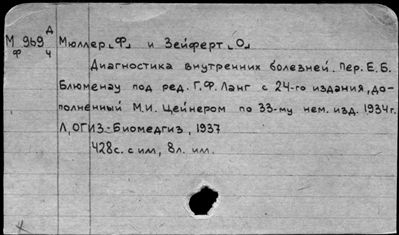 Д
М 969 Мюллер „Ф„ и Зейферт „О„
Ф Ч
Диагностика внутренних болезней. Пер. Е.Б.
Блюменау под ред. Г.Ф. Ланг с 24-го издания, до-
полненный М.И. Цейнером по 33-му нем. изд. 1934г.
Л, ОГИЗ-Биомедгиз, 1937
428с. с илл, 8л. ил.